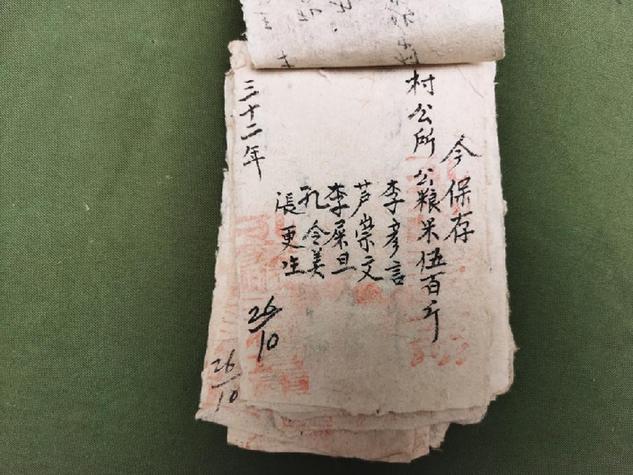 今保存
村公所公粮米伍百斤
李彦言
芦崇文
李屎旦
孔令美
張更生
三十二年
26/10
26/10